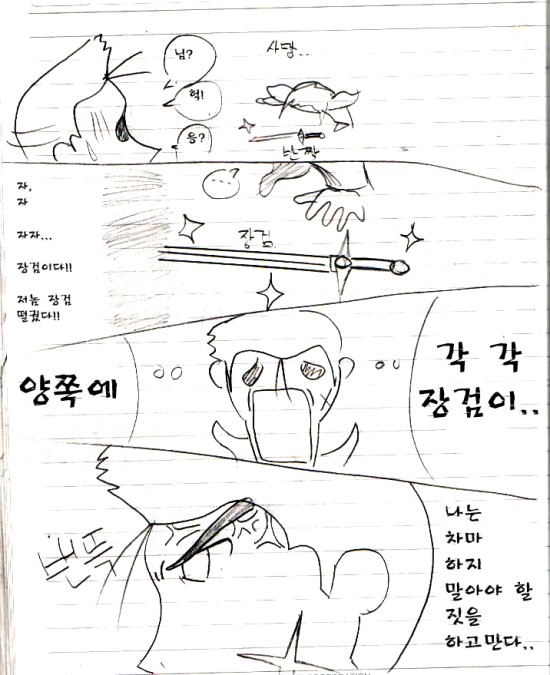 님?
헉!
응?
사망...
반짝
자,
자
자자...
장검이다!!
저놈 장검
떨궜다!!
...?
장검
양쪽에
각 각
장검이..
번뜩
나는
차마
하지
말아야 할
짓을
하고만다..